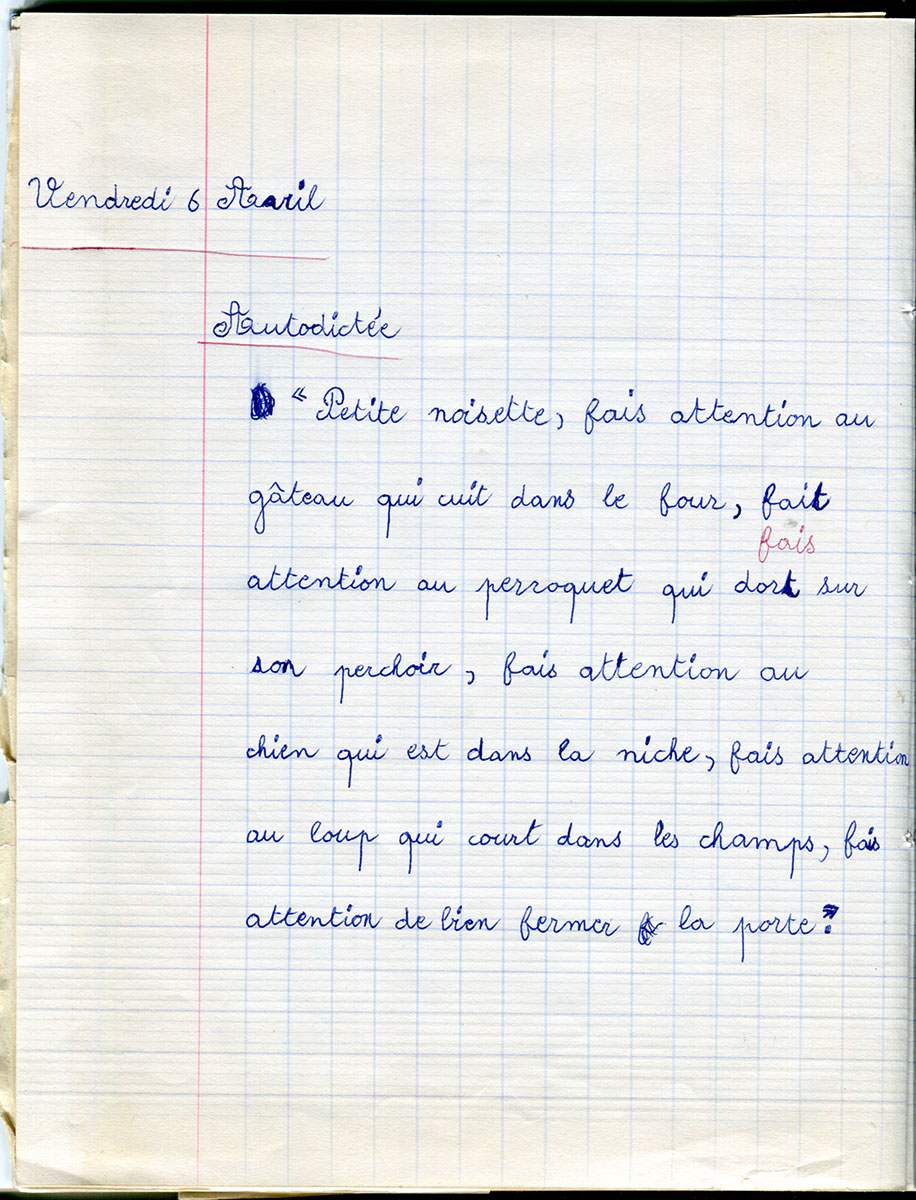 Vendredi 6 Avril
Autodictée
« Petite noisette, fais attention au
gâteau qui cuit dans le four, fait
fais
attention au perroquet qui dort sur
son perchoir, fais attention au
chien qui est dans la niche, fais attention
au loup qui court dans les champs, fais
attention de bien fermer la porte. »